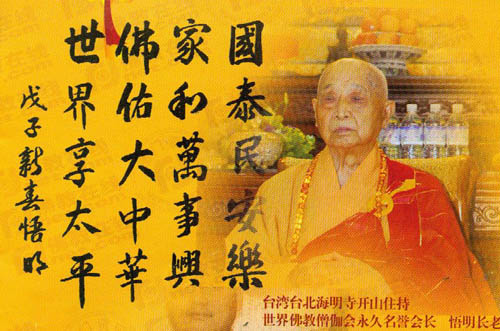 國泰民安樂
家和萬事興
佛佑大中華
世界享太平
戊子新喜悟明
台湾台北海明寺开山住持
世界佛教僧伽会永久名誉会长 悟明长老